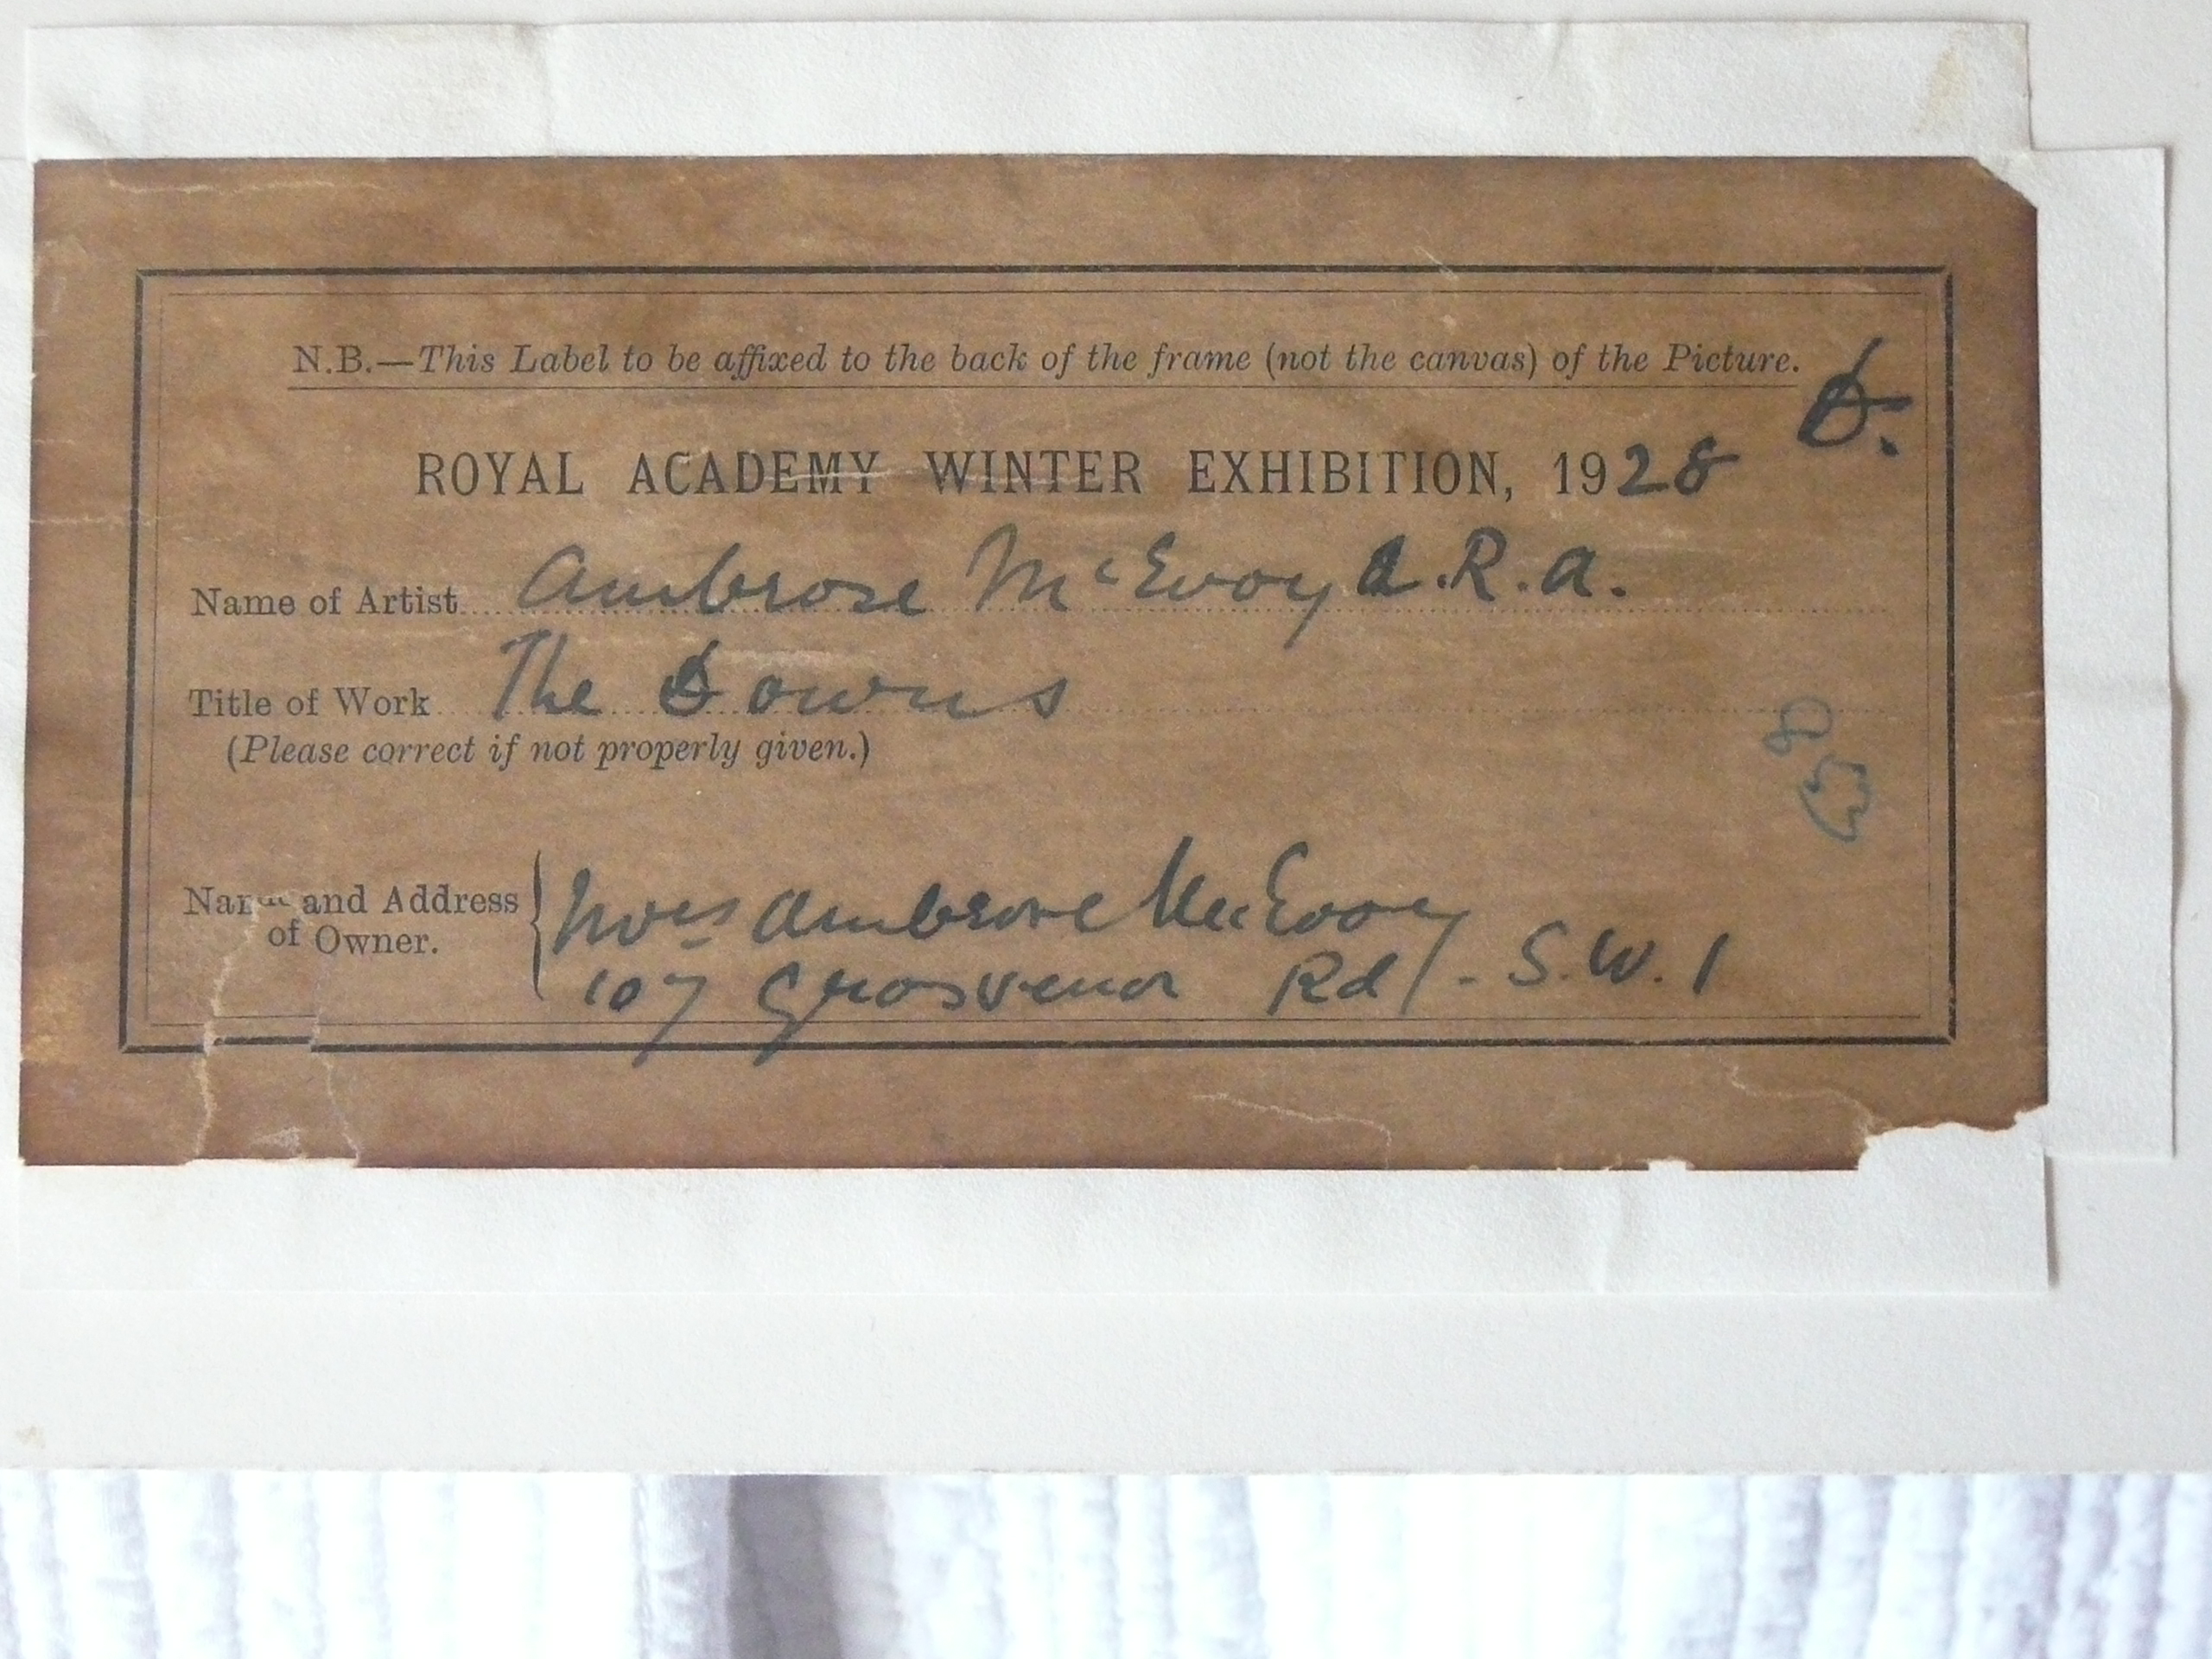 N.B.—This Label to be affixed to the back of the frame (not the canvas) of the Picture.
6.
ROYAL ACADEMY WINTER EXHIBITION, 1928
Name of Artist Ambrose McEvoy A.R.A.
Title of Work The Downs
(Please correct if not properly given.)
Name and Address of Owner. Mrs Ambrose McEvoy
107 Grosvenor Rd/- S.W. 1